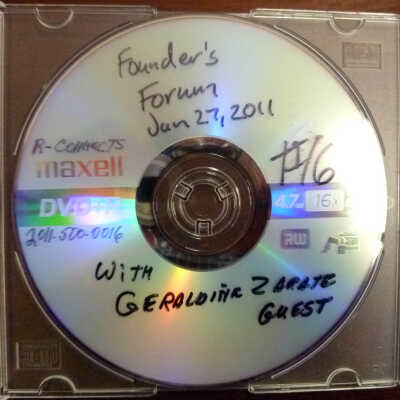 Founder's
Forum
Jan 27, 2011
R-CONNECTS
maxell
#16
4.7 16x
2011-500-0016
RW
WITH
GERALDINE ZARATE
GUEST